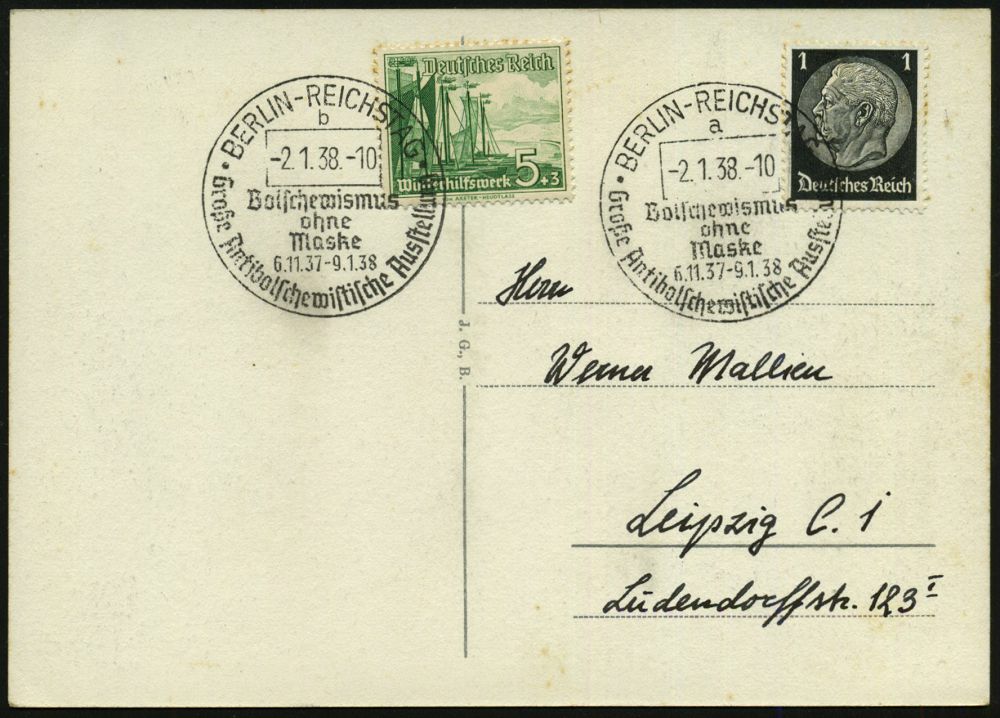 Deutsches Reich
Winterhilfswerk 5+3
1 1
Deutsches Reich
BERLIN-REICHSTAG
b
-2.1.38.-10
Bolschewismus
ohne
Maske
6.11.37-9.1.38
Große Antibolschewistische Ausstellung
BERLIN-REICHSTAG
a
-2.1.38.-10
Bolschewismus
ohne
Maske
6.11.37-9.1.38
Große Antibolschewistische Ausstellung
J. G., B.
Herrn
Werner Mallien
Leipzig C. 1
Ludendorffstr. 123 I